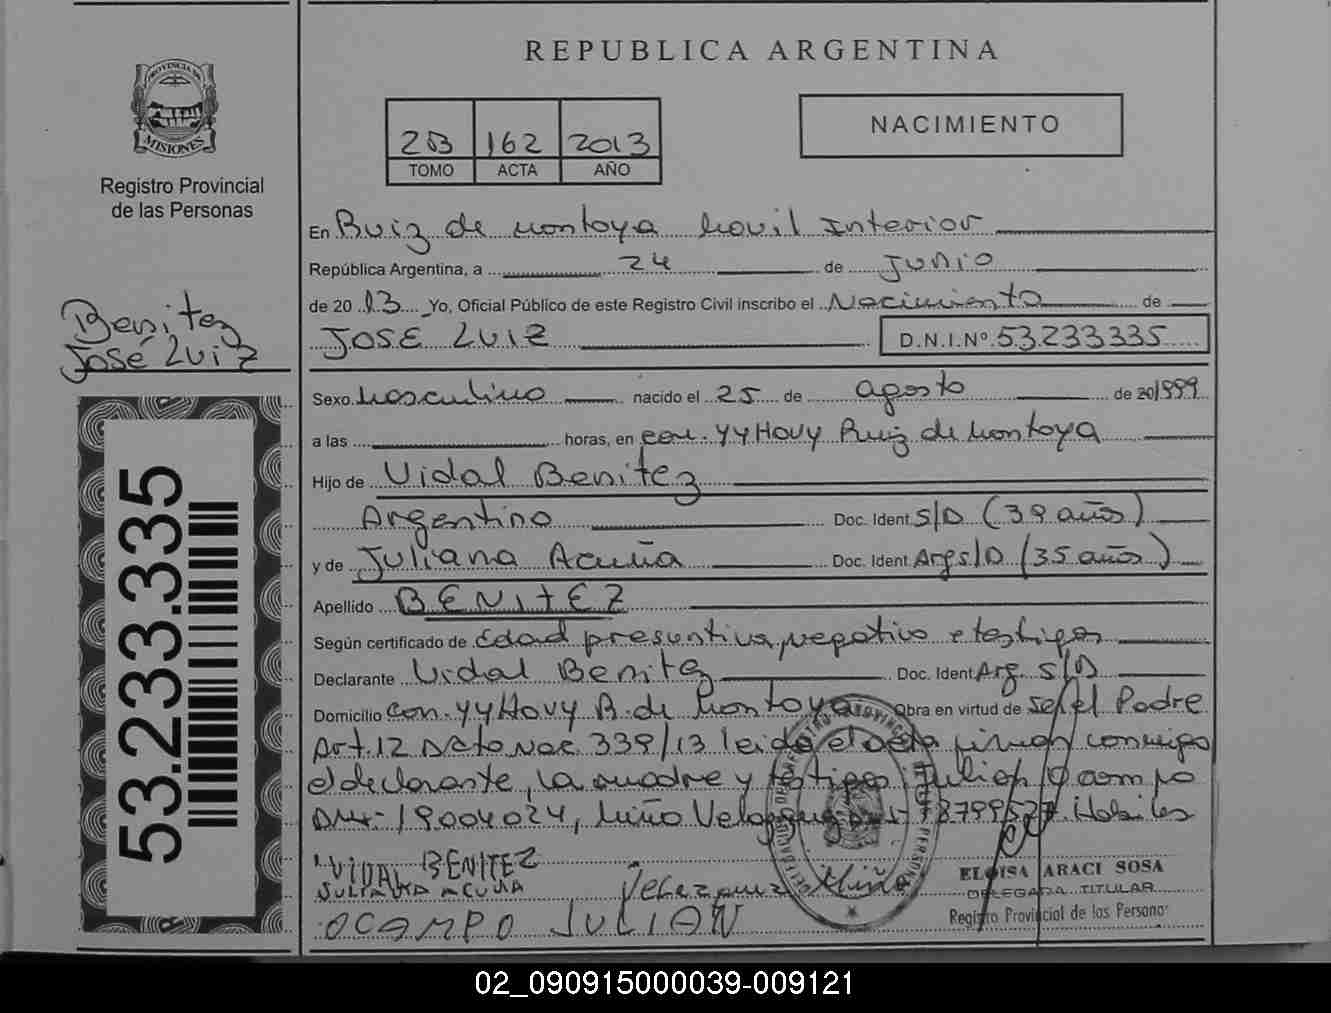 REPUBLICA ARGENTINA
PROVINCIA DE
MISIONES
Registro Provincial
de las Personas
2B 162 2013
TOMO ACTA AÑO
NACIMIENTO
En Ruiz de montoya movil Interior
República Argentina, a 24 de Junio
de 2013 Yo, Oficial Público de este Registro Civil inscribo el Nacimiento de
JOSE LUIZ D.N.I.Nº 53233335
Benitez
José Luiz
Sexo masculino nacido el 25 de agosto de 20/1999
a las horas, en con. YYHOVY Ruiz de montoya
Hijo de Vidal Benitez
Argentino Doc. Ident S/D (39 años)
y de Juliana Acuña Doc. Ident Arg S/D (35 años)
Apellido BENITEZ
Según certificado de Edad presuntiva, negativo e testigos
Declarante Vidal Benitez Doc. Ident Arg. S/D
Domicilio con. YY Hovy R. de montoya Obra en virtud de ser el Padre
Art. 12 Dcto Nac. 339/13 leida el acta firman conmigo
el declarante, la madre y testigos Julian Ocampo
DNI- 19004024, Miño Habiles
VIDAL BENITEZ
JULIANA ACUÑA
Velazquez Miño
OCAMPO JULIAN
ELOISA ARACI SOSA
DELEGADA TITULAR
Registro Provincial de las Personas
53.233.335
02_090915000039-009121